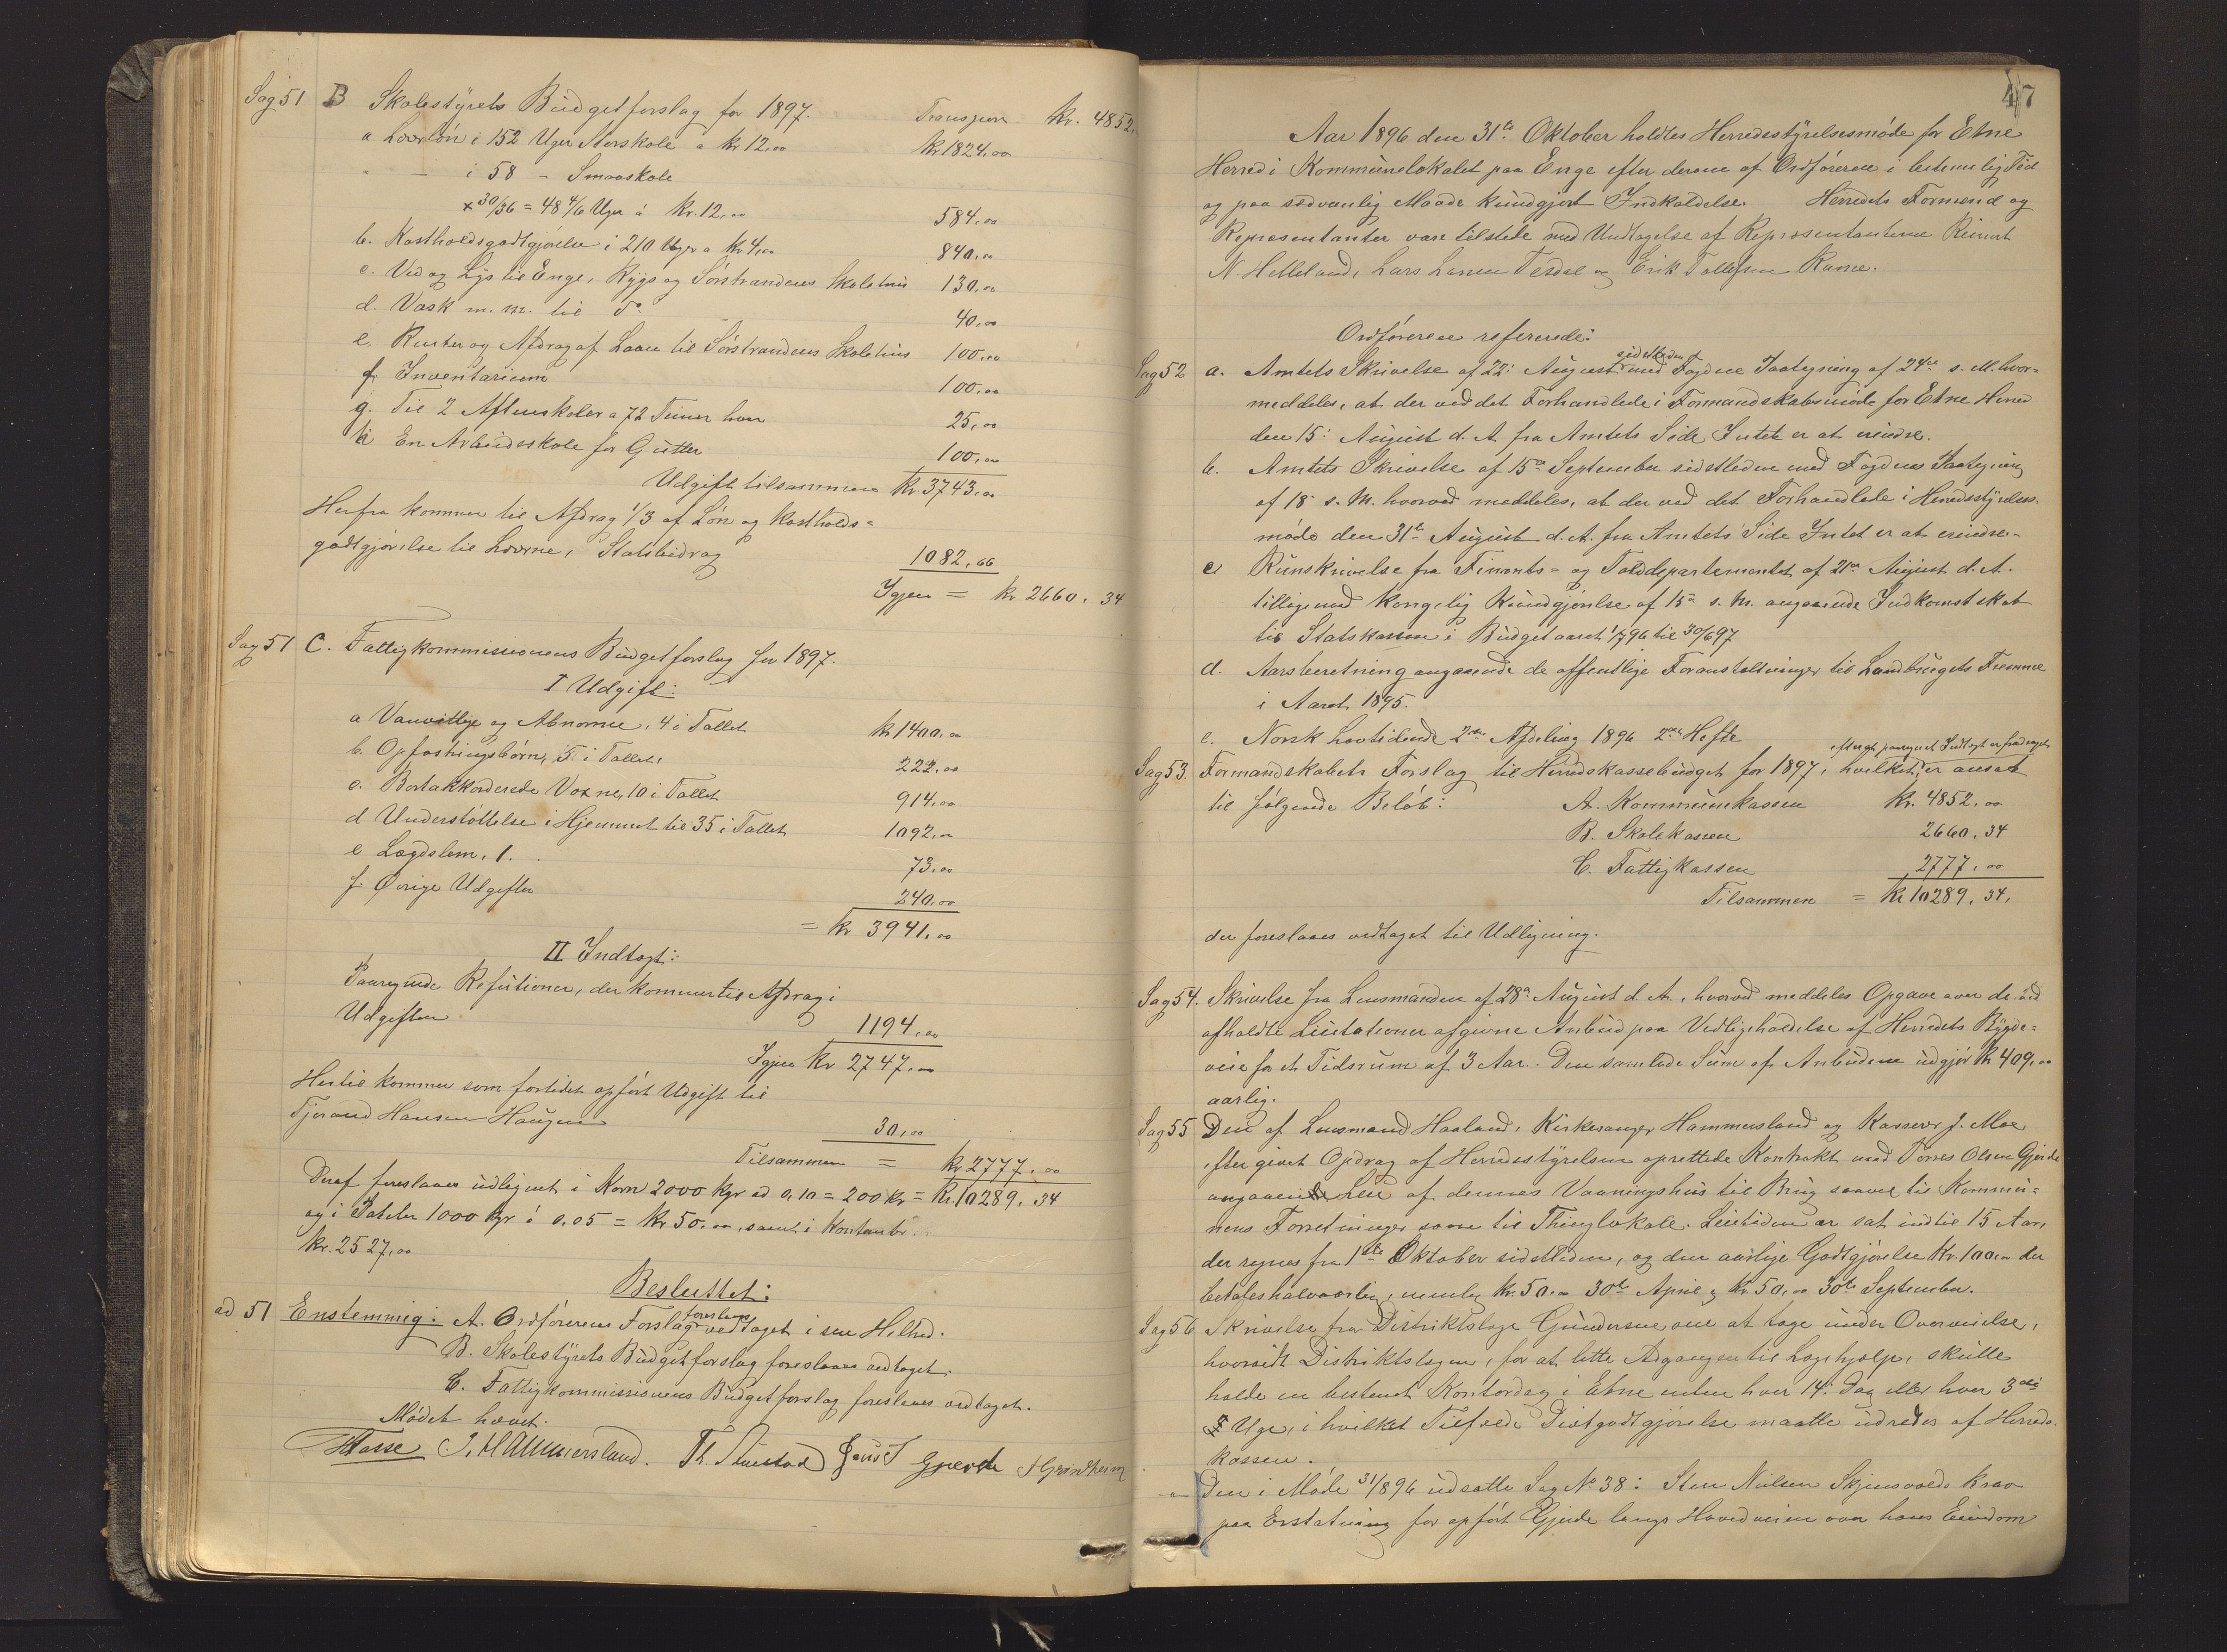 Sag 51 B Skolestyrets Budgetforslag for 1897. Transport kr. 4852.
a Lærløn i 152 Uger Storskole a kr 12,00 kr 1824,00
" — i 58 - Smaaskole
x 30/36 = 48 4/6 Uger á kr. 12,00 584,00
b. Kostholdsgodtgjörelse i 210 Uger a kr 4,00 840,00
c. Ved og Lys til Enge, Rygs og Sörstrandens Skolehus 130,00
d. Vask m. m. til Do 40,00
e. Renter og Afdrag af Laan til Sörstrandens Skolehus 100,00
f. Inventarium 100,00
g. Til 2 Aftenskoler a 72 Timer hver 25,00
h En Arbeidsskole for Gutter 100,00
Udgift tilsammen kr. 3743,00
Herfra kommer til Afdrag 1/3 af Løn og Kostholds=
godtgjörelse til Lærerne, Statsbidrag 1082,66
Igjen = kr 2660,34
Sag 51 C. Fattigkommissionens Budgetforslag for 1897.
I Udgift:
a Vanvittige og Abnorme, 4 i Tallet kr 1400,00
b. Opfostringsbörn, 5 i Tallet, 222,00
c. Bortakkorderede Voxne, 10 i Tallet 914,00
d Understöttelse i Hjemmet til 35 i Tallet 1092,00
e Lægdslem, 1. 73,00
f. Øvrige Udgifter 240,00
= kr 3941,00
II Indtægt:
Paaregnede Refusioner, der kommer til Afdrag i
Udgiften 1194,00
Igjen kr 2747,00
Hertil kommer som fortidet opfört Udgift til
Tjerand Hansen Haugen 30,00
Tilsammen = kr 2777,00
Deraf foreslaaes udlignet i Korn 2000 kgr ad 0,10 = 200 kr = kr. 10289,34
og i Poteter 1000 kgr á 0,05 = kr 50,00, samt i Kontanter
kr. 2527,00
Besluttet:
ad 51 Enstemmig: A. Ordförerens Forslag foreslaaes vedtaget i sin Helhed.
B. Skolestyrets Budgetforslag foreslaaes vedtaget.
C. Fattigkommissionens Budgetforslag foreslaaes vedtaget.
Mödet hævet.
HHasse J. Hammersland. Th. Stuestad Gjerde Grindheim
47
Aar 1896 den 31te Oktober holdtes Herredsstyrelsesmöde for Etne
Herred i Kommunelokalet paa Enge efter derom af Ordföreren i bestemelig Tid
og paa sædvanlig Maade kundgjort Indkaldelse. Herredets Formænd og
Repræsentanter vare tilstede med Undtagelse af Repræsentanterne Reinert
N. Helleland, Lars Larsen Tesdal og Erik Tollefsen Rame.
Ordföreren refererede:
Sag 52 a. Amtets Skrivelse af 22: August sidstleden med Fogdens Paategning af 24de s. M. hvor=
meddeles, at der ved det Forhandlede i Formandskabsmöde for Etne Herred
den 15: August d. A. fra Amtets Side Intet er at erindre.
b. Amtets Skrivelse af 15de September sidstleden med Fogdens Paategning
af 18 s. M. hvorved meddeles, at der ved det Forhandlede i Herredsstyrelses-
möde den 31te August d. A. fra Amtets Side Intet er at erindre.
c Rundskrivelse fra Finants- og Tolddepartementet af 21de August d. A.
tilligemed Kongelig Kundgjörelse af 15de s. M. angaaende Indkomstskat
til Statskassen i Budgetaaret 1/7 96 til 30/6 97
d. Aarsberetning angaaende de offentlige Foranstaltninger til Landbrugets Fremme
i Aaret 1895.
e. Norsk Lovtidende 2den Afdeling 1896 2det Hefte
Sag 53. Formandskabets Forslag til Herredskassebudget for 1897, hvilket, efterat paaregnet Indtægt er fradraget er ansat
til fölgende Belöb: A. Kommunekassen kr. 4852,00
B. Skolekassen 2660,34
C. Fattigkassen 2777,00
Tilsammen = kr 10289,34,
der foreslaaes vedtaget til Udligning.
Sag 54. Skrivelse fra Lensmanden af 28de August d. A., hvorved meddeles Opgave over de ved
afholdte Licitationer afgivne Anbud paa Vedligeholdelse af Herredets Bygde=
veie for et Tidsrum af 3 Aar. Den samlede Sum af Anbudene udgjör kr 409,00
aarlig.
Sag 55 Den af Lensmand Haaland, Kirkesanger Hammersland og Kasserer J. Moe
efter givet Opdrag af Herredsstyrelsen oprettede Kontrakt med Torres Olsen Gjerde
angaaende Leie af dennes Vaaningshus til Brug saavel til Kommu=
nens Forretninger som til Thinglokale. Leietiden er sat indtil 15 Aar,
der regnes fra 1ste Oktober sidstleden, og den aarlige Godtgjörelse kr. 100,00 der
betales halvaarlig, nemlig kr. 50,00 30te April og kr. 50,00 30te September.
Sag 56 Skrivelse fra Distriktslæge Gundersen om at tage under Overveielse,
hvorvidt Distriktslægen, for at lette Adgangen til Lægehjælp, skulde
holde en bestemt Kontordag i Etne enten hver 14: Dag eller hver 3die
Uge, i hvilket Tilfælde Diætgodtgjörelse maatte udredes af Herreds-
kassen.
Den i Möde 31/8 96 udsatte Sag No 38: Sten Nielsen Skjensvolds Krav
paa Erstatning for opfört Gjerde langs Hovedveien over hans Eiendom